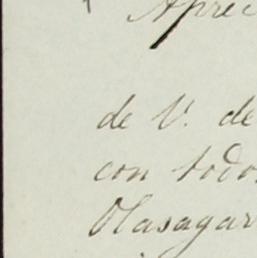 Aprec
de V. de
con todos
Olasagar